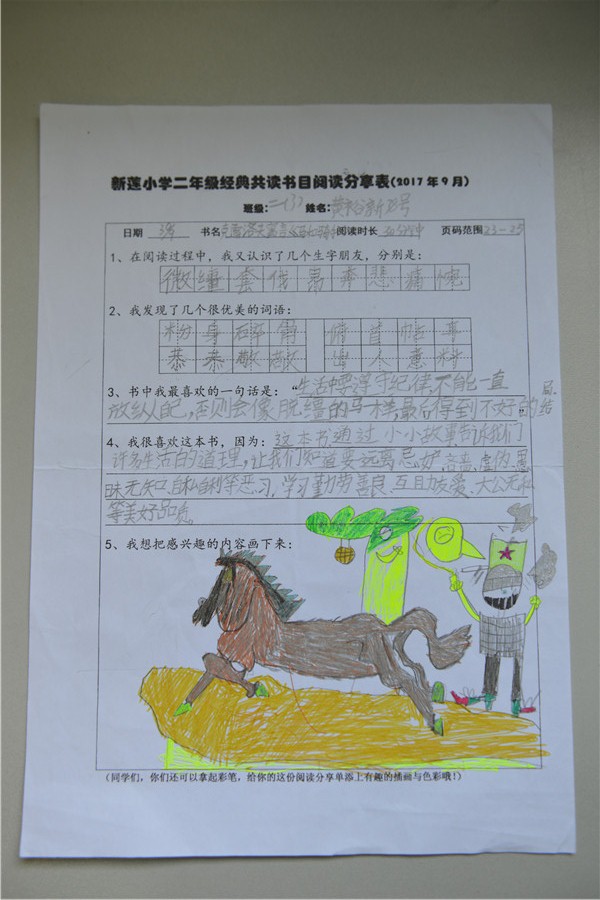 新莲小学二年级经典共读书目阅读分享表(2017年9月)
班级: 二(3) 姓名: 黄 新 号
日期 书名 克雷洛夫寓言 阅读时长 30分钟 页码范围23-25
1、在阅读过程中，我又认识了几个生字朋友，分别是:
微 缰 套 俄 昂 奔 悲 痛
2、我发现了几个很优美的词语:
粉 身 碎 骨 俯 首 帖 耳
恭 恭 敬 敬 出 人 意 料
3、书中我最喜欢的一句话是: “生活中要遵守纪律,不能一直
放纵自己,否则会像脱缰的马一样,最后得到不好的结局。
4、我很喜欢这本书，因为: 这本书通过小小故事告诉我们
许多生活的道理,让我们知道要远离忌妒、吝啬、虚伪、愚
昧无知、自私自利等恶习,学习勤劳善良、互助友爱、大公无私
等美好品质。
5、我想把感兴趣的内容画下来:
(同学们，你们还可以拿起彩笔，给你的这份阅读分享单添上有趣的插画与色彩哦!)